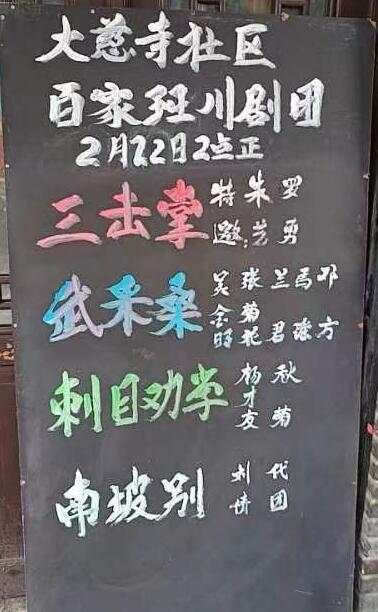 大慈寺社区
百家班川剧团
2月22日2点正
三击掌 特邀: 朱艺 罗勇
武采桑 吴金旺 张菊花 兰君 马 邓方
刺目劝学 杨才友 秋菊
南坡别 刘情 代团